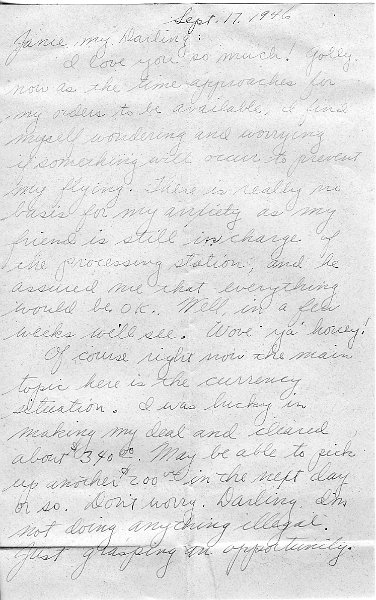 Sept. 17, 1946
Janie my Darling:
I love you so much! Golly
now as the time approaches for
my orders to be available, I find
myself wondering and worrying
if something will occur to prevent
my flying. There is really no
basis for my anxiety as my
friend is still in charge of
the processing station, and he
assured me that everything
would be OK. Well, in a few
weeks we'll see. Wove ya' honey!
Of course right now the main
topic here is the currency
situation. I was lucky in
making my deal and cleared
about $340.00. May be able to pick
up another $200.00 in the next day
or so. Don't worry. Darling I'm
not doing anything illegal.
Just grasping an opportunity.